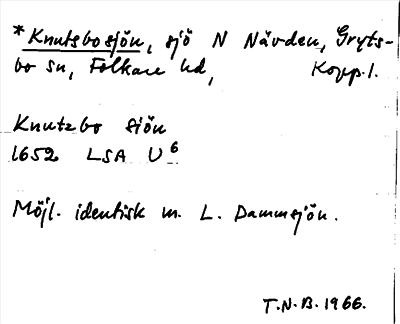 *Knutsbosjön, sjö N Nävden, Gryts-
bo sn, Folkare hd, Kopp. l.
Knutzbo Siön
1652 LSA U6
Möjl. identisk m. L. Dammsjön.
T.N.B. 1966.